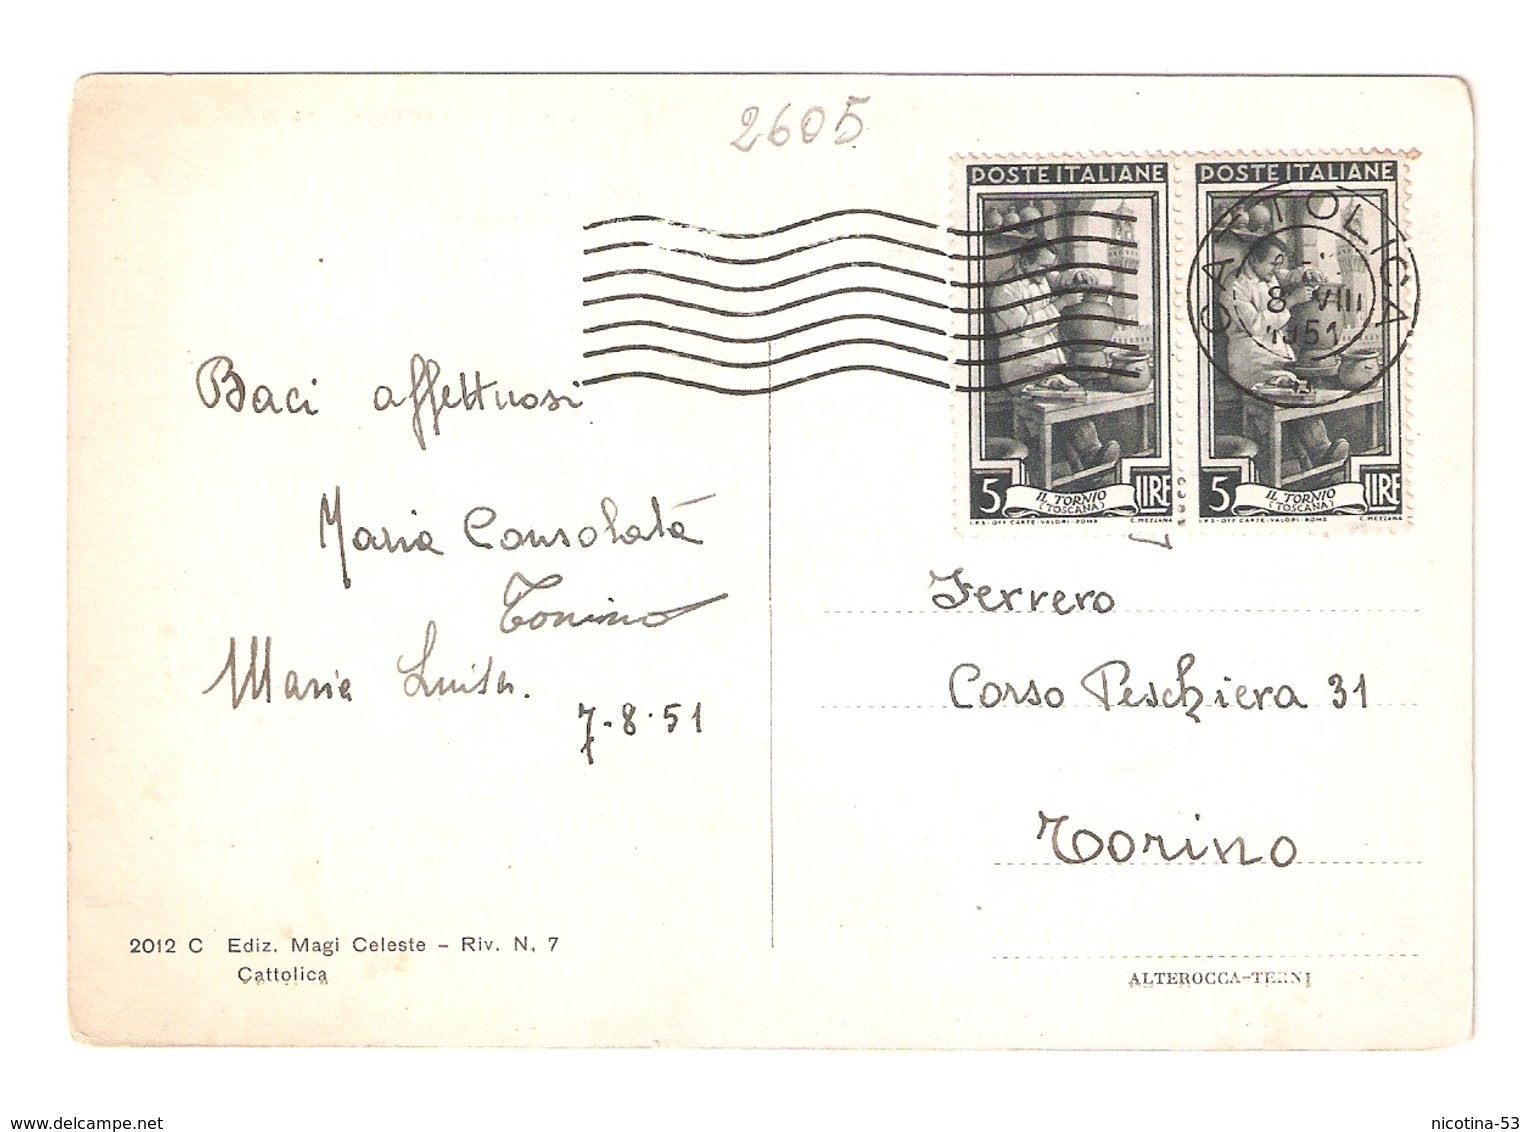 2605
POSTE ITALIANE
POSTE ITALIANE
CATTOLICA
8 VIII
1951
5 LIRE
IL TORNIO
(TOSCANA)
I.P.S-OFF CARTE-VALORI-ROMA C. MEZZANA
5 LIRE
IL TORNIO
(TOSCANA)
I.P.S-OFF CARTE-VALORI-ROMA C. MEZZANA
Baci affettuosi
Maria Consolata
Tonino
Maria Luisa.
7-8-51
Ferrero
Corso Peschiera 31
Torino
2012 C Ediz. Magi Celeste – Riv. N. 7
Cattolica
ALTEROCCA-TERNI
www.delcampe.net
nicotina-53